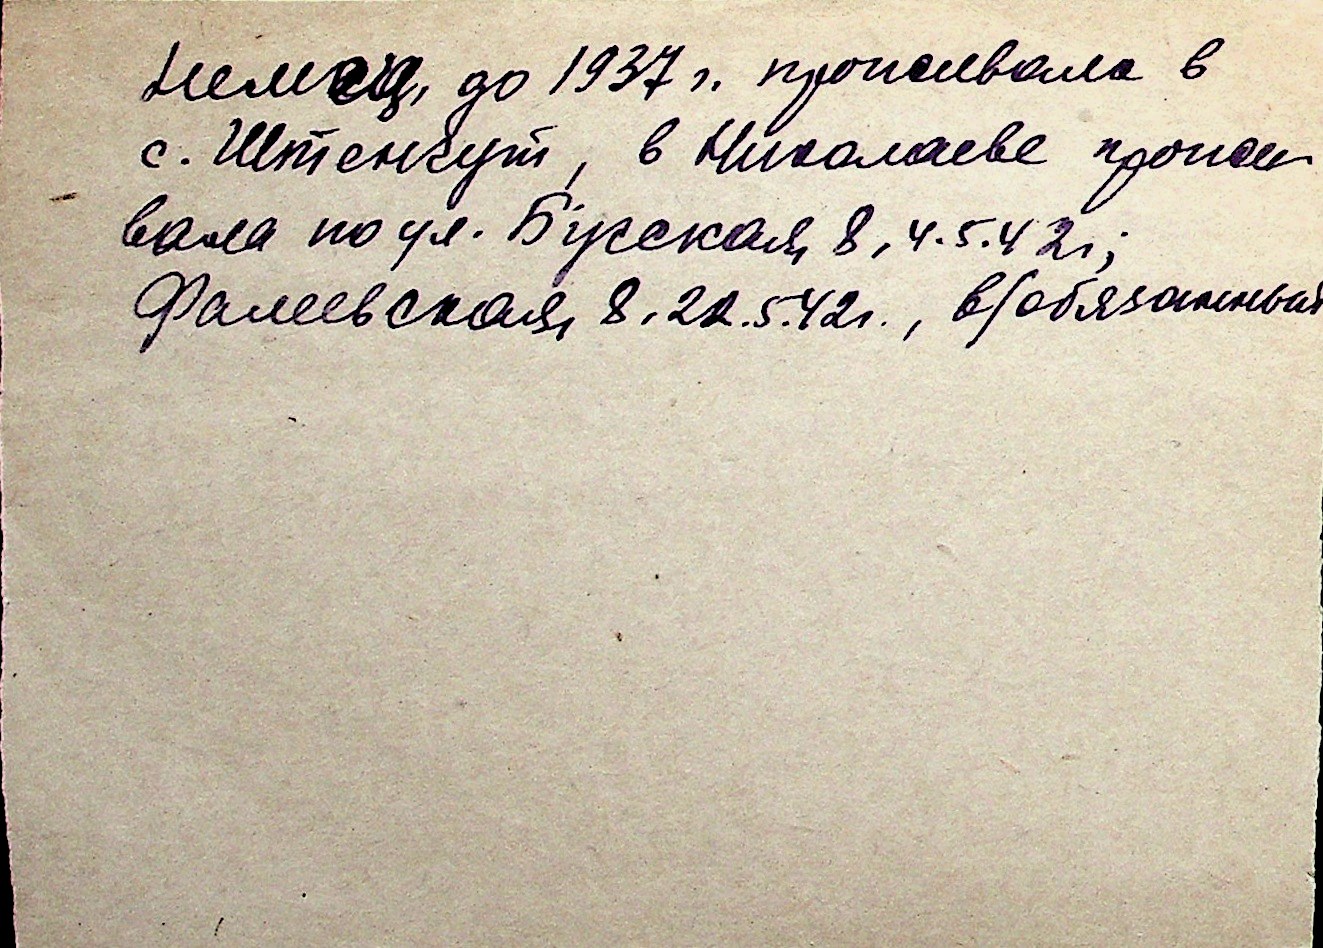 Немец, до 1937 г. проживала в
с. Штенгут, в Николаеве прожи
вала по ул. Бугская, 8, 4.5.42г;
Фалеевская, 8, 22.5.42г., в/обязанный